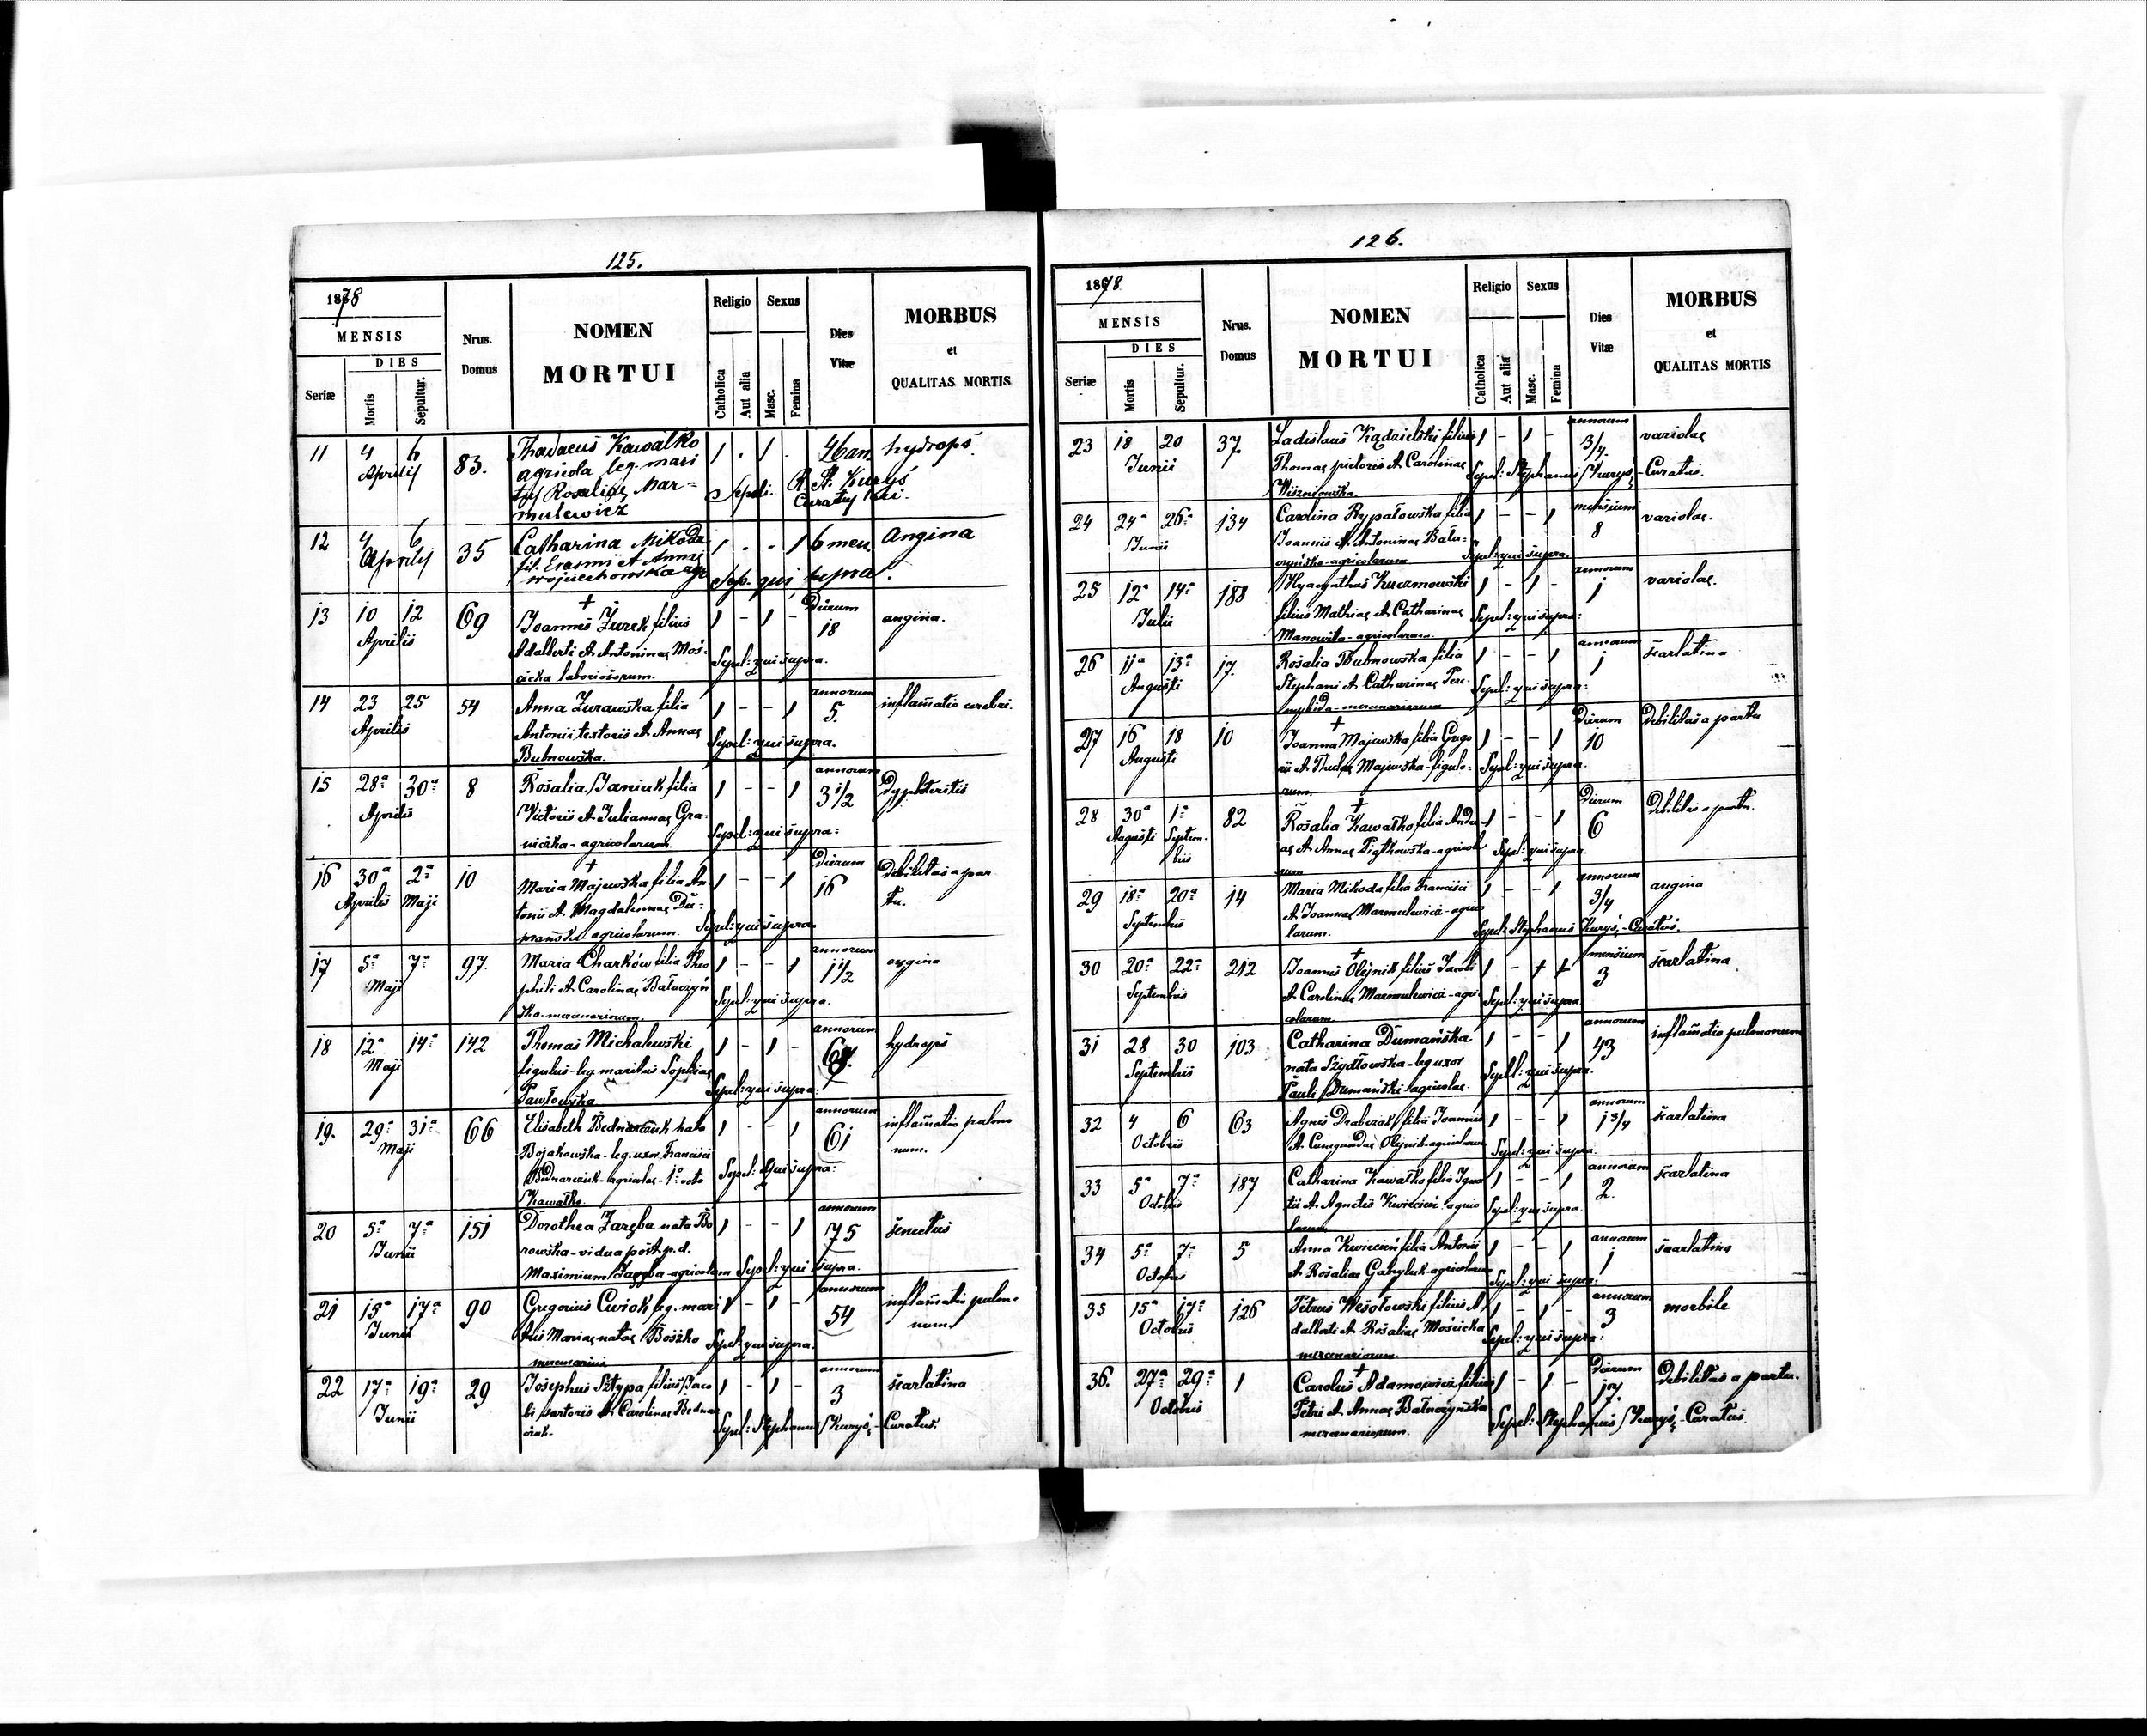 125.
1878
MENSIS
DIES
Seriæ
Mortis
Sepultur.
Nrus.
Domus
NOMEN
MORTUI
Religio
Catholica
Aut alia
Sexus
Masc.
Femina
Dies
Vitæ
MORBUS
et
QUALITAS MORTIS
11 4 6 83. Thadaeus Kawałko 1 . 1 . 46 an. hydrops.
Aprilis agricola leg. mari
tus Rosaliae Mar= Sepeli. R. St. Kuryś
mulewicz Curatus loci.
12 4 6 35 Catharina Mikoda 1 . . 1 6 men. Angina
Aprilis fil. Erasmi et Annae
Wojciechowska agr Sep. qui supra.
13 10 12 69 Joannes Żurek filius 1 - 1 - Dierum 18 angina.
Aprilis Adalberti et Antoninae Moś=
cicka laboriosorum. Sepel: qui supra.
14 23 25 54 Anna Żurawska filia 1 - - 1 annorum 5. inflam̄atio cerebri.
Aprilis Antonii textoris et Annae
Bubnowska. Sepel: qui supra.
15 28a 30a 8 Rosalia Janiuk filia 1 - - 1 annorum 3 1/2 Dyphteritis
Aprilis Victoris et Juliannae Gra=
niczka - agricolarum. Sepel: qui supra:
16 30a 2a 10 Maria Majewska filia An 1 - - 1 Dierum 16 Debilitas a par
Aprilis Maji tonii et Magdalennae Du= tu.
mańska - agricolarum. Sepel: qui supra.
17 5a 7a 97. Maria Charków filia Theo 1 - - 1 annorum 1 1/2 angina
Maji phili et Carolinae Bałuczyń
ska - mercenariorum. Sepel: qui supra.
18 12a 14a 142 Thomas Michalewski 1 - 1 - annorum hydrops
Maji figulus - leg. maritus Sophiae
Pawłowska Sepel: qui supra:
19. 29a 31a 66 Elisabeth Bednarczuk nata 1 - - 1 annorum 61 inflam̄atio pulmo
Maji Bojakowska - leg. uxor Francisci num.
Bednarczuk - agricolae - 1o voto
Kawałko. Sepel: qui supra:
20 5a 7a 151 Dorothea Zaręba nata Bo 1 - - 1 annorum 75 senectus
Junii rowska - vidua post p. d.
Maximium Zaręba - agricolam Sepel: qui supra.
21 15a 17a 90 Gregorius Ćwiok leg. mari 1 - 1 - annorum 54 inflam̄atio pulmo
Junii tus Mariae natae Boszko num.
mercenarius Sepel: qui supra.
22 17a 19a 29 Josephus Sztypa filius Jaco 1 - 1 - annorum 3 scarlatina
Junii bi sartoris et Carolinae Bednar
czuk. Sepel: Stephanus Kuryś, - Curatus.
126.
1878
MENSIS
DIES
Seriæ
Mortis
Sepultur.
Nrus.
Domus
NOMEN
MORTUI
Religio
Catholica
Aut alia
Sexus
Masc.
Femina
Dies
Vitæ
MORBUS
et
QUALITAS MORTIS
23 18 20 37. Ladislaus Kądzielski filius 1 - 1 - annorum 3/4. variolae
Junii Thomae pictoris et Carolinae
Wiszniowska. Sepel: Stephanus Kuryś, - Curatus.
24 24a 26a 134 Carolina Rypałowska filia 1 - - 1 mensium 8 variolae.
Junii Joannis et Antoninae Bału=
czyńska - agricolarum Sepel: qui supra.
25 12a 14a 188 Hyacynthus Kuczmowski 1 - 1 - annorum 1 variolae.
Julii filius Mathiae et Catharinae
Manowita - agricolarum. Sepel: qui supra:
26 11a 13a 17. Rosalia Bubnowska filia 1 - - 1 annorum 1 scarlatina
Augusti Stephani et Catharinae Tere=
mercenariorum Sepel: qui supra:
27 16 18 10 Joanna Majewska filia Grego 1 - - 1 Dierum 10 Debilitas a partu
Augusti rii et Theclae Majewska - figulo=
rum. Sepel: qui supra.
28 30a 1a 82 Rosalia Kawałko filia Andre 1 - - 1 Dierum 6 Debilitas a partu.
Augusti Septem= ae et Annae Piątkowska - agricola
bris rum Sepel: qui supra.
29 18a 20a 14 Maria Mikoda filia Francisci 1 - - 1 annorum 3/4 angina
Septembris et Joannae Marmulewicz - agrico
larum. Sepel: Stephanus Kuryś, - Curatus.
30 20a 22a 212 Joannes Olejnik filius Jacobi 1 - + + mensium 3 scarlatina
Septembris et Carolinae Marmulewicz - agri
colarum. Sepel: qui supra
31 28 30 103 Catharina Dumańska 1 - - 1 annorum 43 inflam̄atio pulmonum
Septembris nata Szydłowska - leg. uxor
Pauli Dumański agricolae. Sepel: qui supra.
32 4 6 63 Agnes Drabczak filia Joannis 1 - - 1 annorum 1 3/4 scarlatina
Octobris et Cunegundae Olejnik - agricolarum
Sepel: qui supra.
33 5a 7a 187 Catharina Kawałko filia Igna 1 - - 1 annorum 2. scarlatina
Octobris tii et Agnetis Kwiecień agrico
larum Sepel: qui supra.
34 5a 7a 5 Anna Kwiecień filia Antonii 1 - - 1 annorum 1 scarlatina
Octobris et Rosaliae Gabryluk - agricolarum
Sepel: qui supra:
35 15a 17a 126 Petrus Wesołowski filius A 1 - 1 - annorum 3 morbile
Octobris dalberti et Rosaliae Mościcka
mercenariorum. Sepel: qui supra:
36. 27a 29a 1 Carolus Adamowicz filius 1 - 1 - Dierum 17. Debilitas a partu.
Octobris Petri et Annae Bałuczyńska
mercenariorum. Sepel: Stephanus Kuryś, - Curatus.